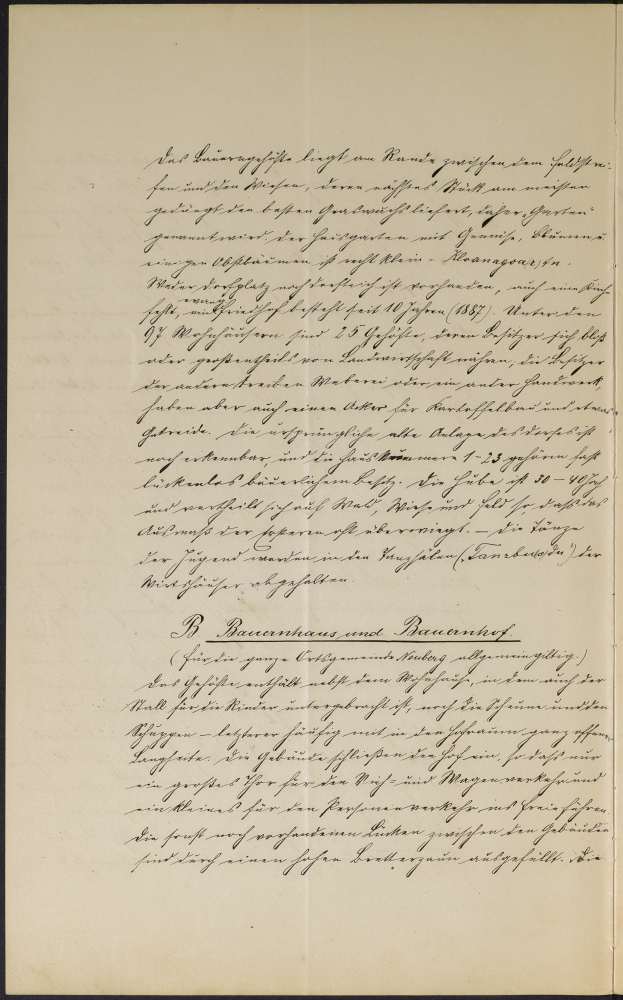 Das Bauerngehöfte liegt am Rande zwischen dem Feldstrei-
fen und den Wiesen, deren nächstes Stück am meisten
gedüngt den besten Graswuchs liefert, daher „Garten"
genannt wird. Der Hausgarten mit Gemüse, Blumen u.
einigen Obstbäumen ist recht klein -
Weder Dorfplatz noch Dorfteich ist vorhanden, auch eine Kirche
fehlt, ein evang. Friedhof besteht seit 10 Jahren (1887). Unter den
97 Wohnhäusern sind 25 Gehöfte, deren Besitzer sich bloß
oder großentheils von Landwirtschaft nähren, die Besitzer
der andern treiben Weberei oder ein ander Handwerk,
haben aber auch einen Acker für Kartoffelbau und etwas
Getreide. Die ursprüngliche alte Anlage des Dorfes ist
noch erkennbar, und die Hausnummern 1-23 gehören fast
lückenlos bäuerlichem Besitz. Die Hube ist 30 - 40 Joch
und vertheilt sich auf Wald, Wiese und Feld so, daß das
Ausmaß der ersteren oft überwiegt. - Die Tänze
der Jugend werden in den Tanzsälen der
Wirtshäuser abgehalten.
B Bauernhaus und Bauernhof.
(Für die ganze Ortsgemeinde Neuberg allgemein giltig.)
Das Gehöfte enthält nebst dem Wohnhause, in dem auch der
Stall für die Rinder untergebracht ist, noch die Scheune und den
Schuppen - letzterer häufig mit in den Hofraum ganz offener
Langseite. Die Gebäude schließen den Hof ein, so daß nur
ein großes Thor für den Vieh- und Wagenverkehr und
ein kleines für den Personenverkehr ins Freie führen.
Die sonst noch vorhandenen Lücken zwischen den Gebäuden
sind durch einen hohen Bretterzaun ausgefüllt. Die